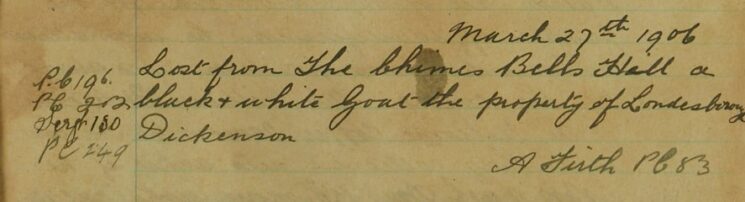 March 27th 1906
Lost from The Chimes Bells Hill a
black + white Goat the property of Londesboroug
Dickenson
A Firth PC 83
P.C 196.
PC 202
Sergt 150
PC 249